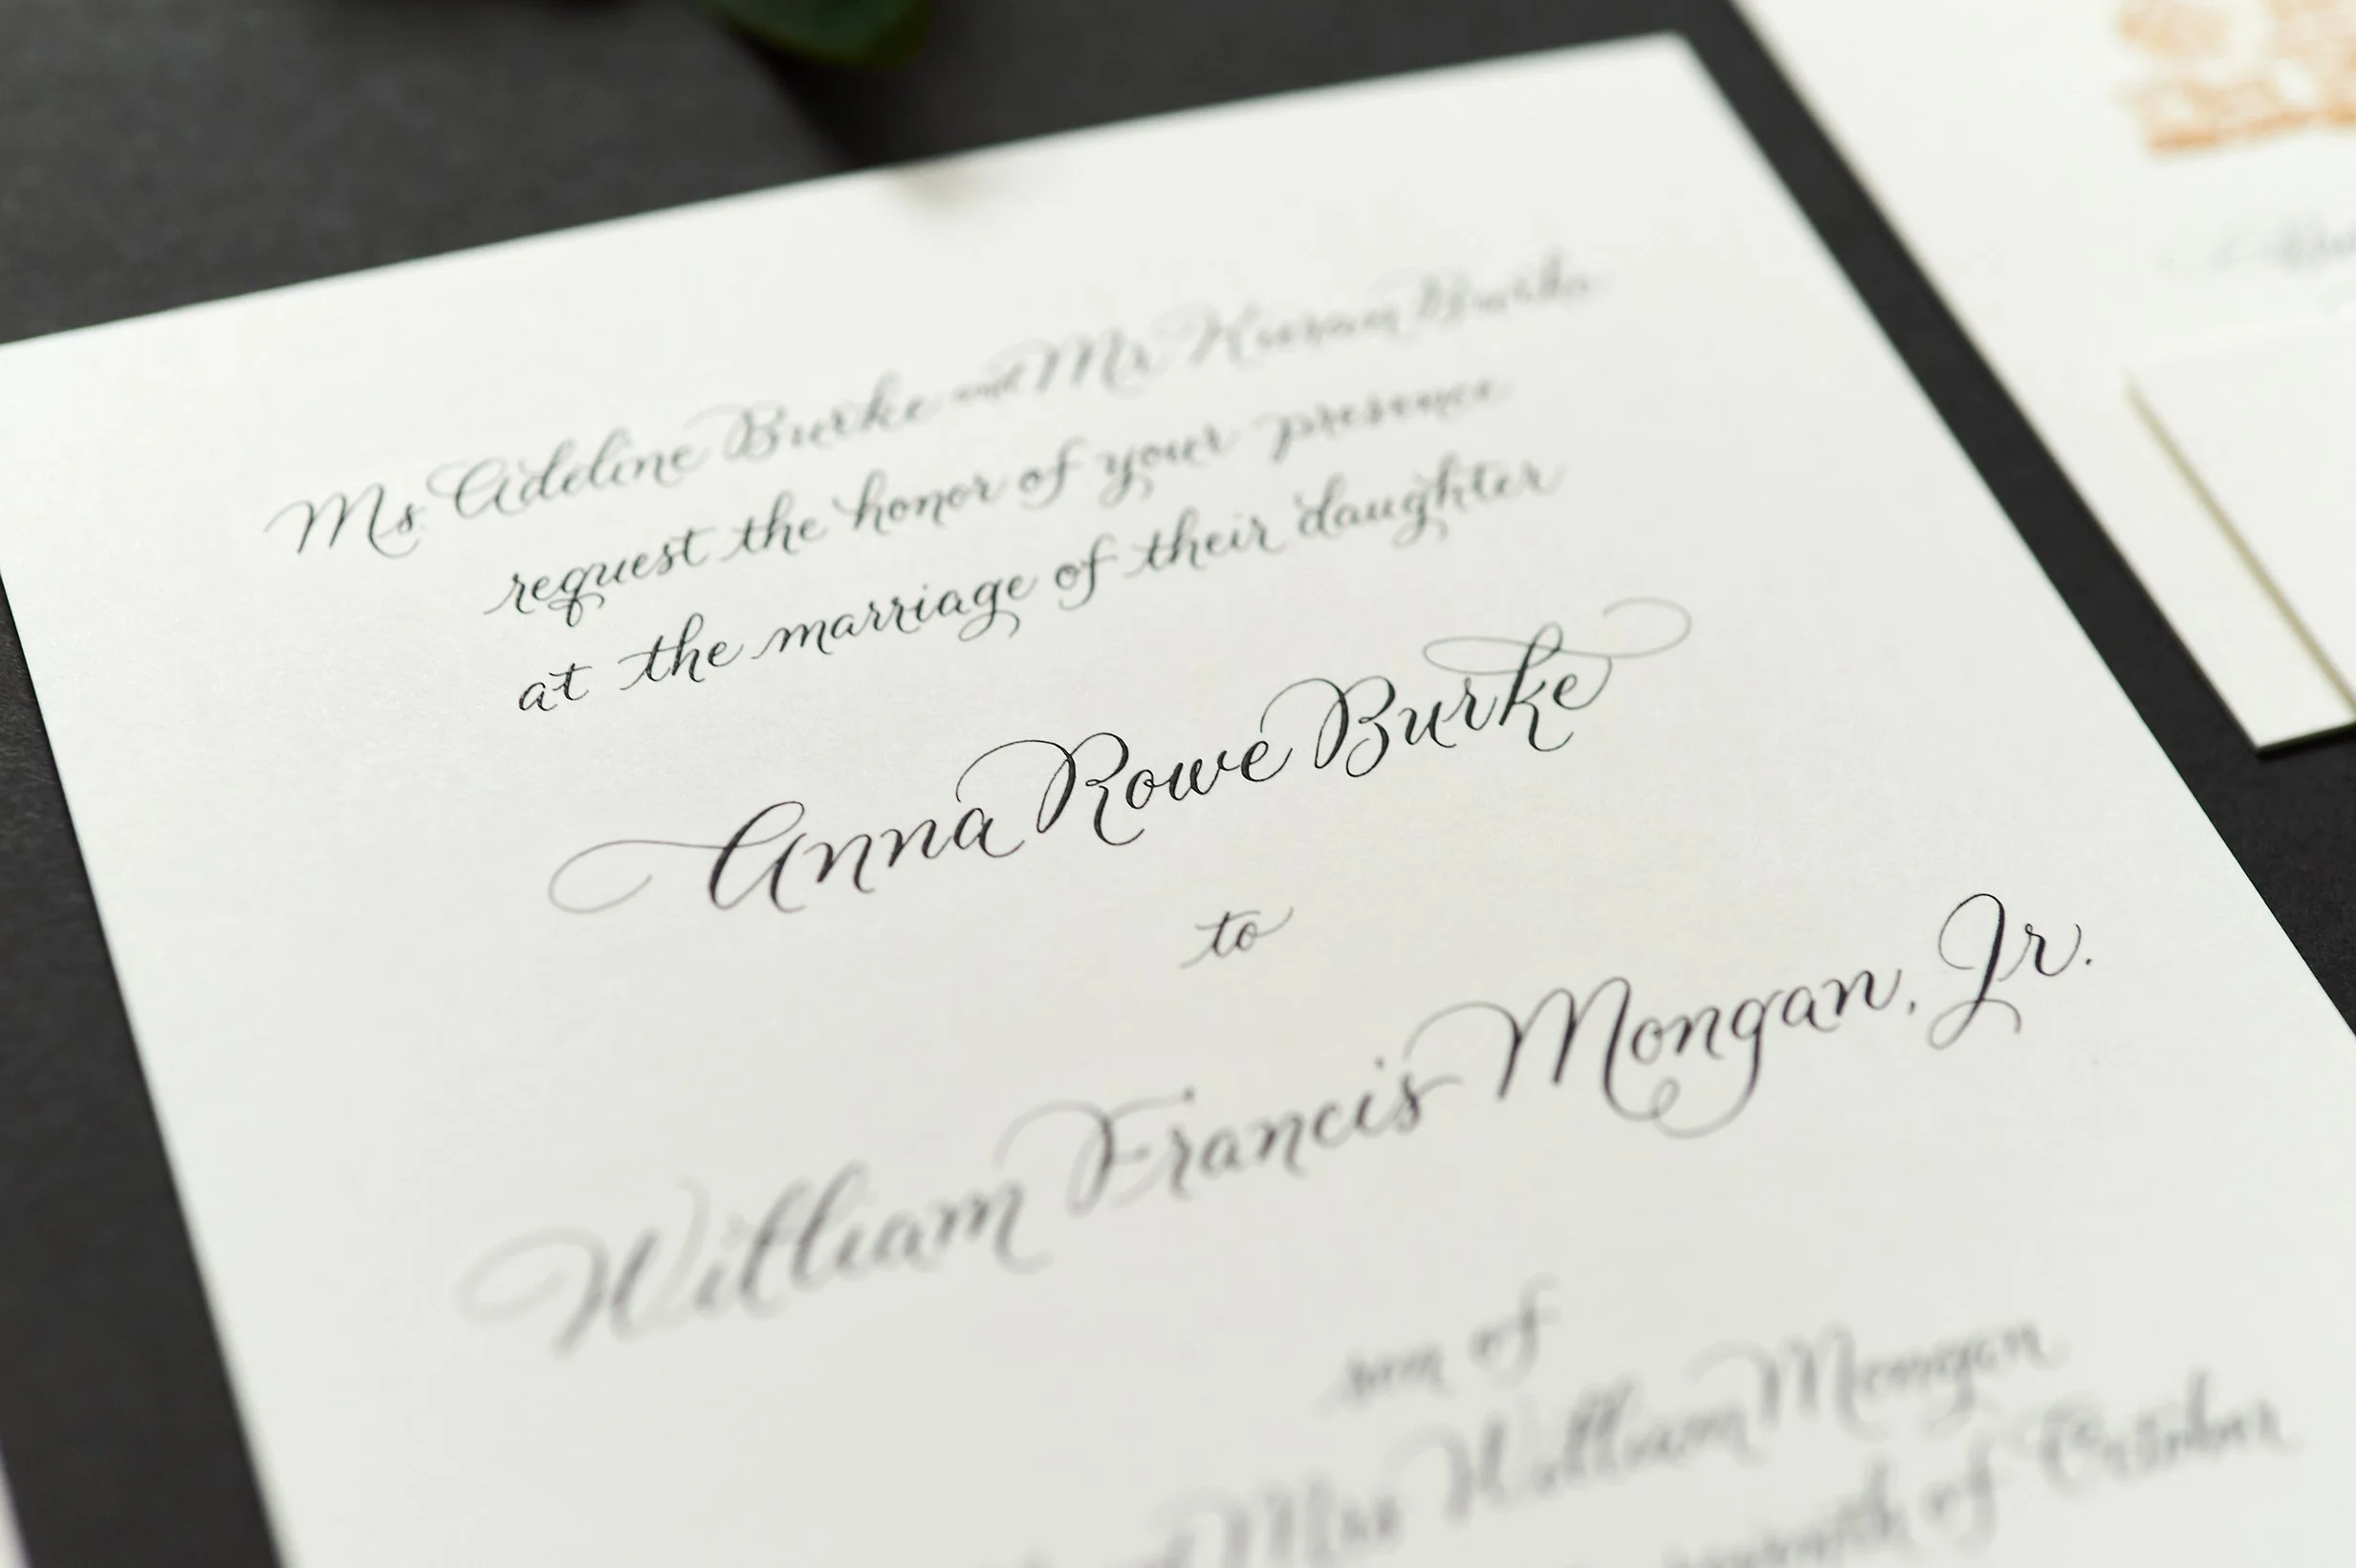 Ms. Adeline Burke and Mr Kieran Burke
request the honor of your presence
at the marriage of their daughter
Anna Rowe Burke
to
William Francis Mongan, Jr.
son of
Mrs William Mongan
of October